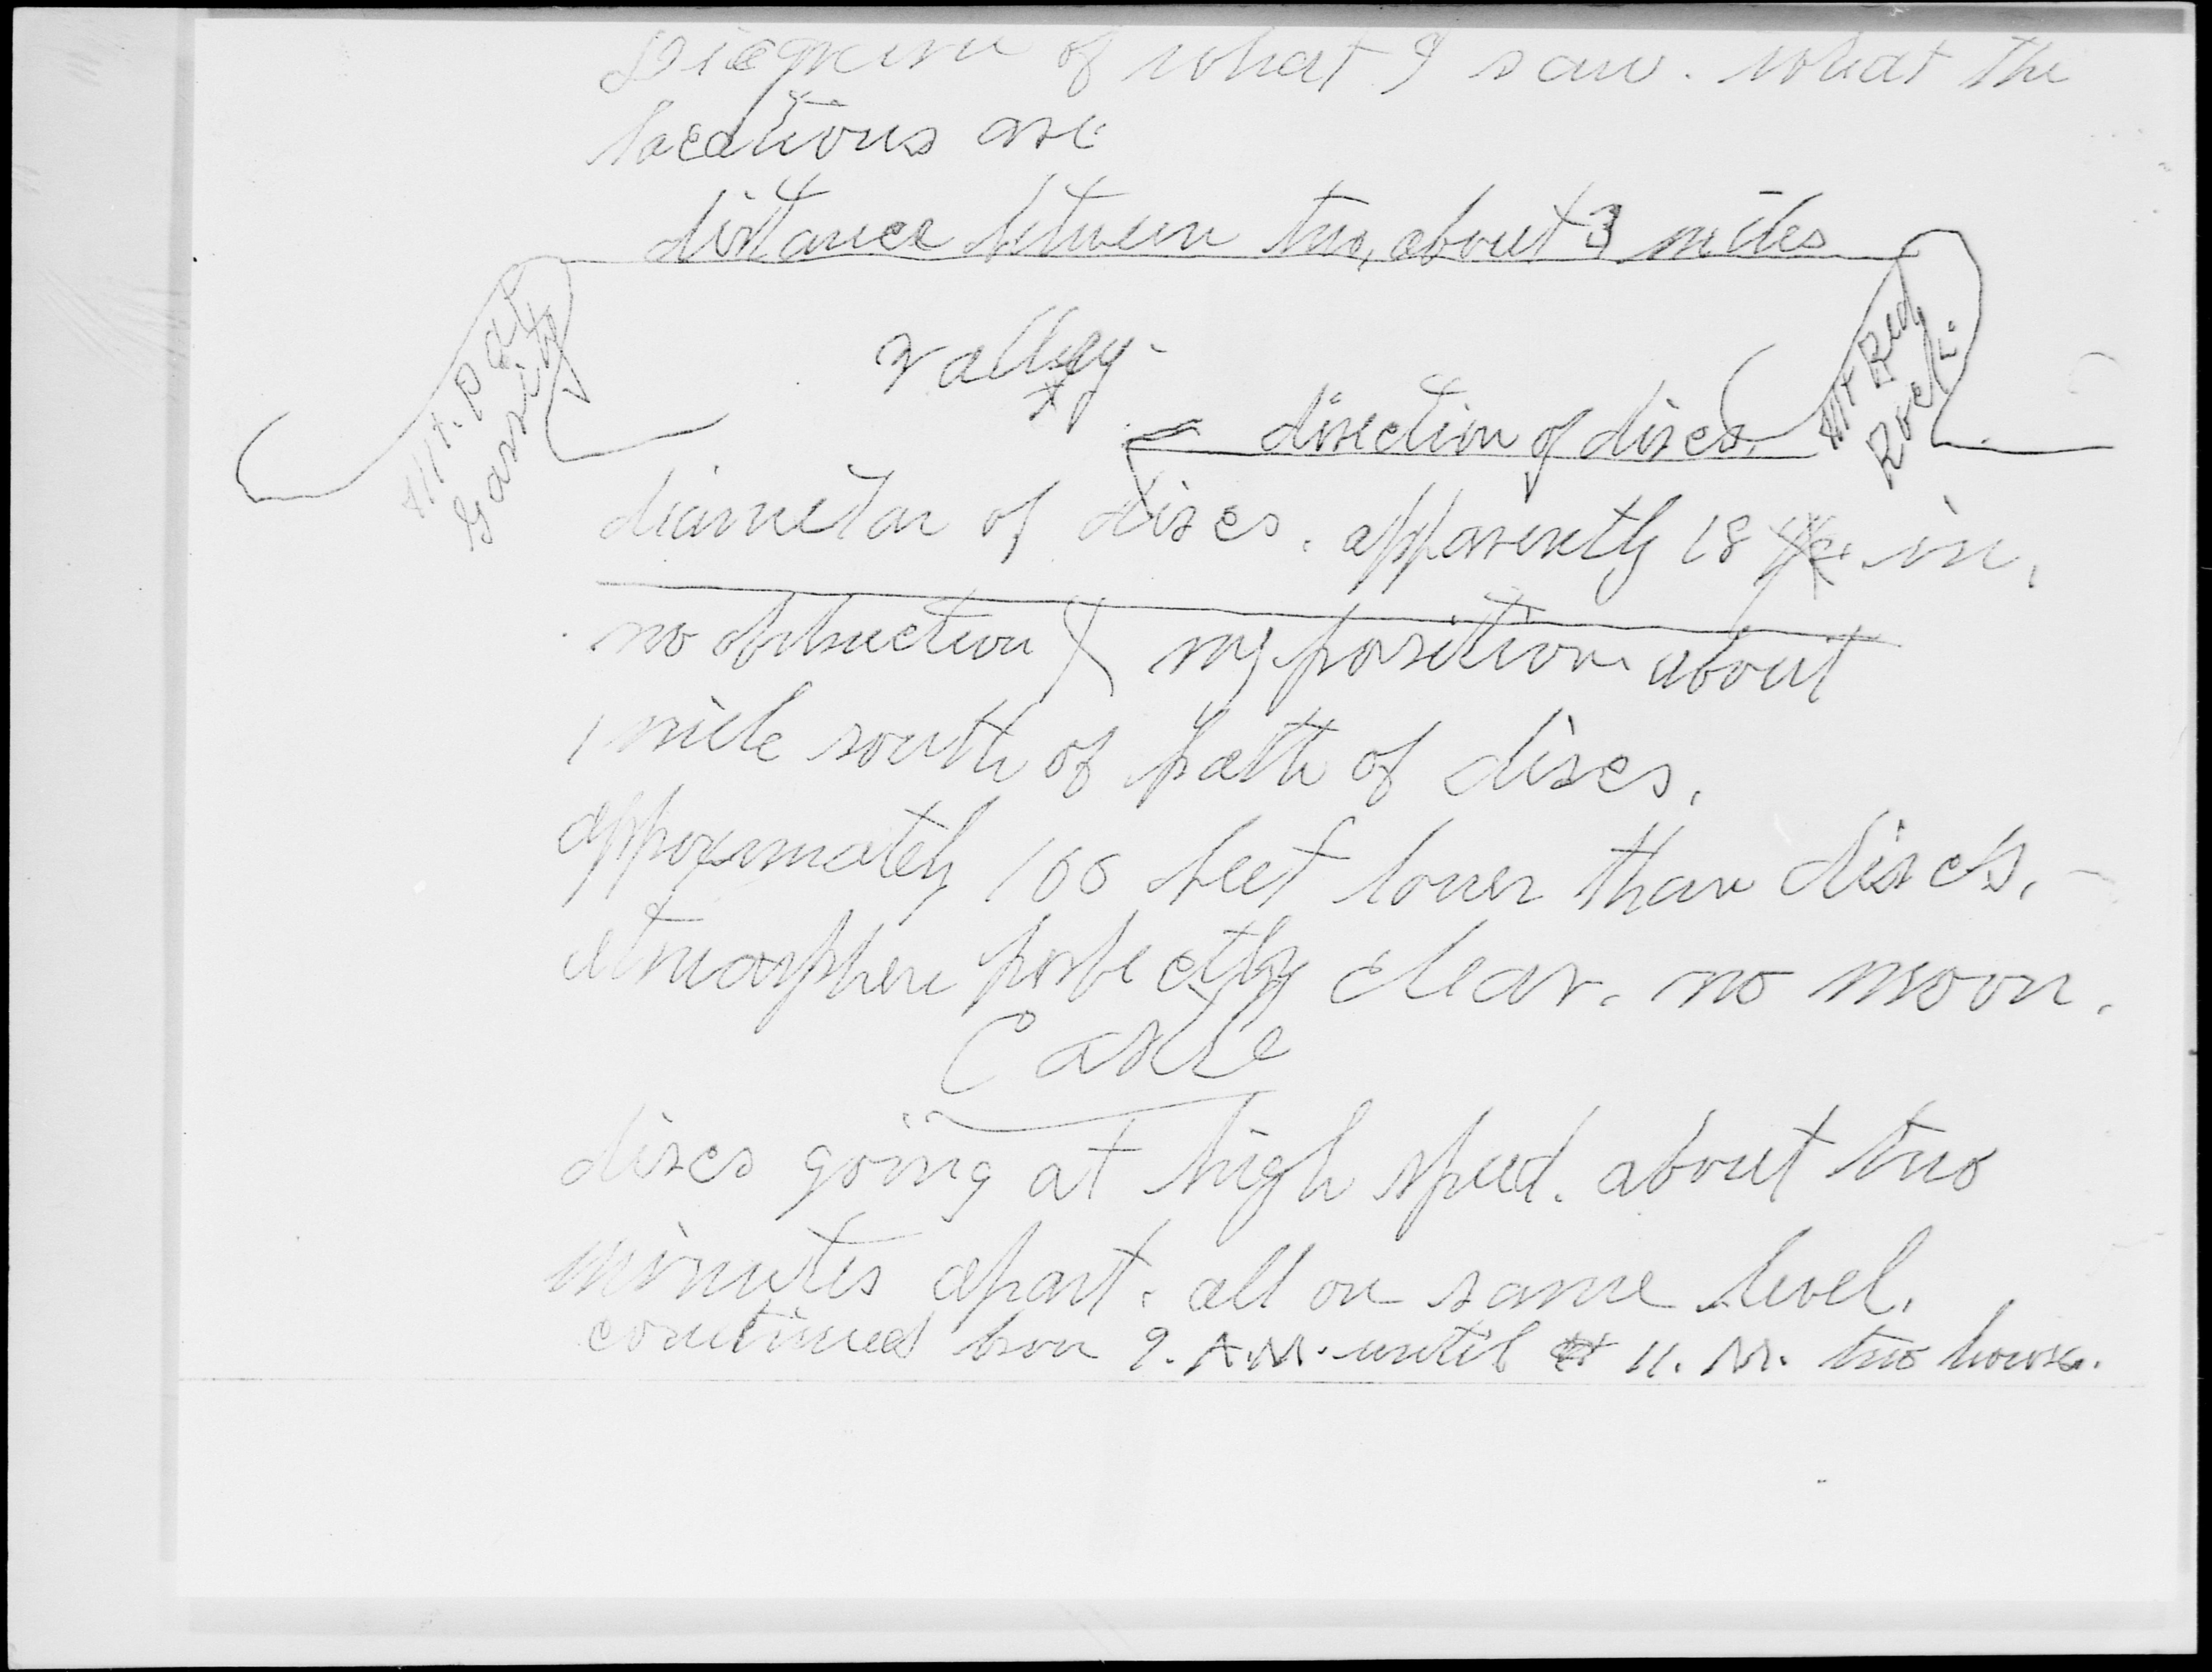 Diagram of what I saw. what the
locations are
distance between two, about 3 miles
Mt. Pat
Garsita
valley.
Mt Red
Rock.
direction of discs.
diametar of discs. apparently 18 in.
no obstruction my position about
1 mile south of path of discs.
approxmately 100 feet lower than discs.
atmosphere perfectly clear. no moon.
Castle
discs going at high speed. about two
minutes apart. all on same level.
continued from 9. A.M. until 11. M. two hours.